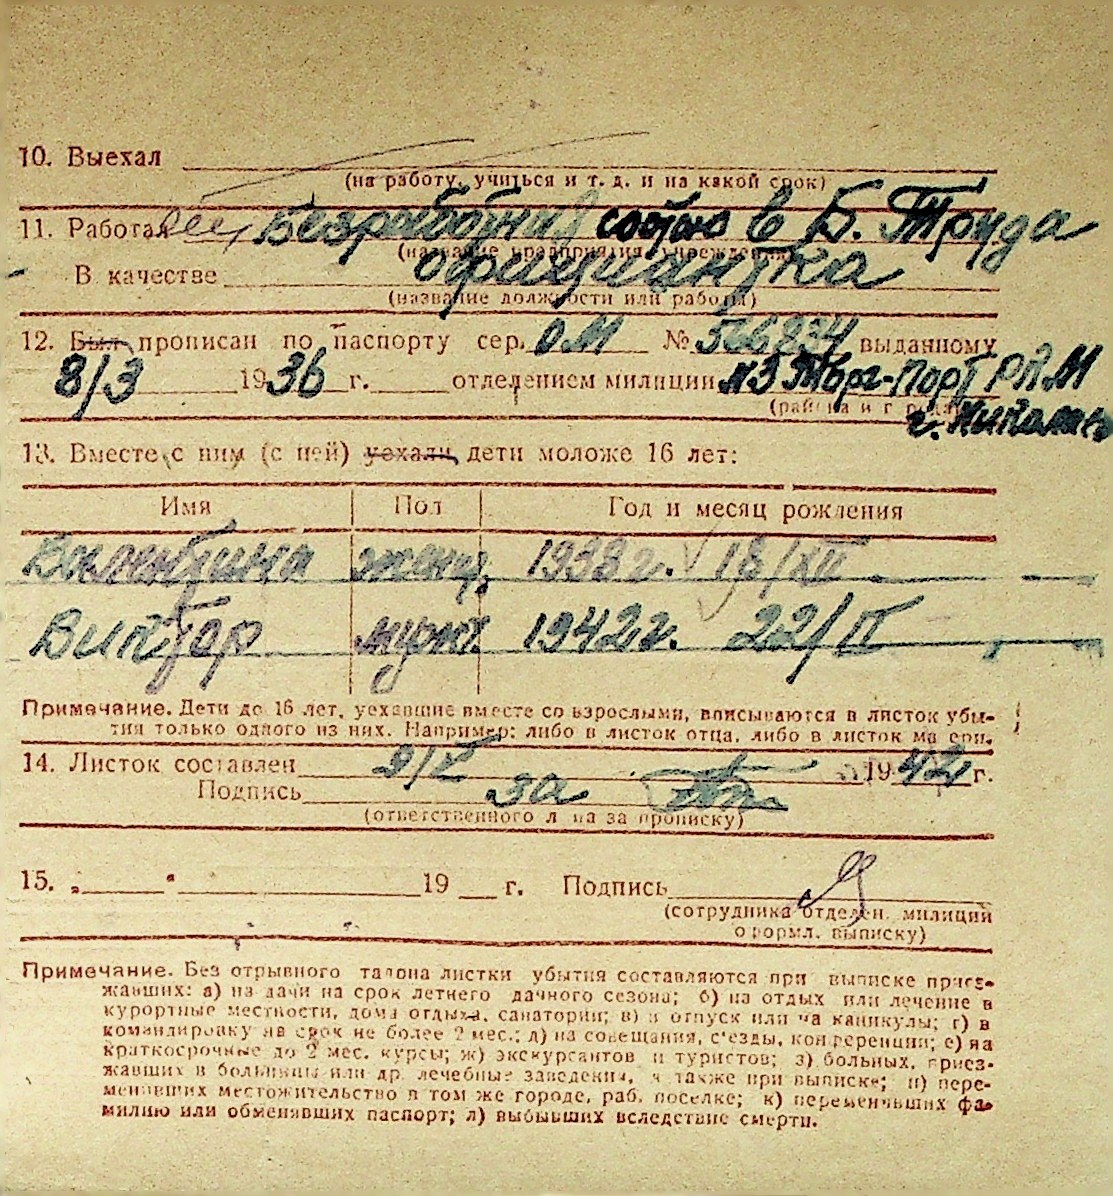 10. Выехал
(на работу, учиться и т. д. и на какой срок)
11. Работал Безработная состою в Б. Труда
(название предприятия, учреждения)
В качестве официантка
(название должности или работы)
12. Был прописан по паспорту сер. ОМ № 566834 выданному
8/3 1936 г. отделением милиции №3 Торг-Порт Р.П.М
(района и города) г. Николаев
13. Вместе с ним (с ней) уехали дети моложе 16 лет:
Имя Пол Год и месяц рождения
Валентина женщ. 1938 г. 18/XII
Виктор муж. 1942 г. 22/II
Примечание. Дети до 16 лет, уехавшие вместе со взрослыми, вписываются в листок убы-
тия только одного из них. Например: либо в листок отца, либо в листок матери.
14. Листок составлен 9/X 1942 г.
Подпись за
(ответственного лица за прописку)
15. „ “ 19 г. Подпись
(сотрудника отделен. милиции
оформл. выписку)
Примечание. Без отрывного талона листки убытия составляются при выписке приез-
жавших: а) на дачи на срок летнего дачного сезона; б) на отдых или лечение в
курортные местности, дома отдыха, санатории; в) в отпуск или на каникулы; г) в
командировку на срок не более 2 мес.; д) на совещания, с'езды, конференции; е) на
краткосрочные до 2 мес. курсы; ж) экскурсантов и туристов; з) больных, приез-
жавших в больницы или др. лечебные заведения, а также при выписке; и) пере-
менивших местожительство в том же городе, раб. поселке; к) переменивших фа-
милию или обменявших паспорт; л) выбывших вследствие смерти.